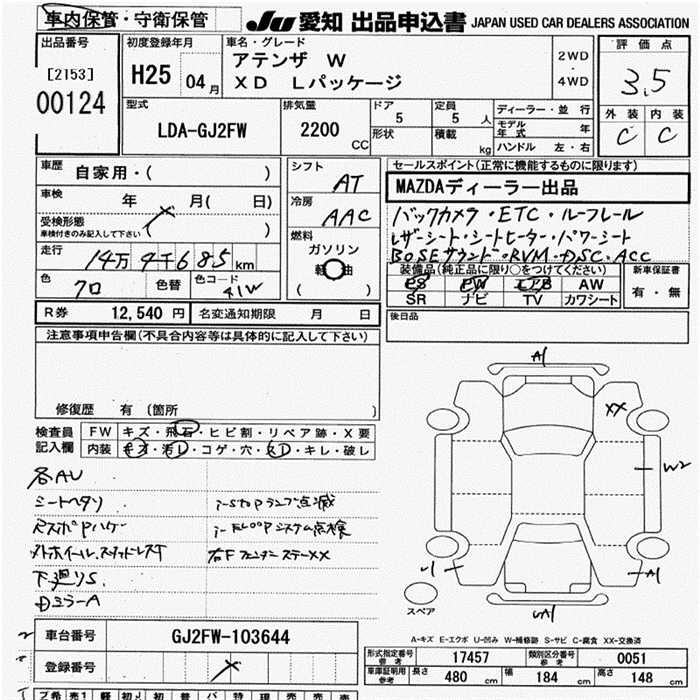 車内保管・守衛保管
JU 愛知 出品申込書 JAPAN USED CAR DEALERS ASSOCIATION
出品番号
[2153]
00124
初度登録年月
H25 04月
車名・グレード
アテンザ W
XD Lパッケージ
2WD
・
4WD
評価点
3.5
外装 内装
C C
型式
LDA-GJ2FW
排気量
2200 CC
ドア
5
形状
定員
5人
積載
kg
ディーラー・並行
モデル年式 年
ハンドル 左・右
車歴 自家用・( )
車検 年 月( 日)
受検形態
車検付きのみ記入して下さい ( )
走行 14万4千685km
色 クロ 色替 色コード 41W
シフト
AT
冷房
AAC
燃料
ガソリン
軽油
( )
セールスポイント(正常に機能するものに限ります)
MAZDAディーラー出品
バックカメラ・ETC・ルーフレール
レザーシート・シートヒーター・パワーシート
BOSEサウンド・RVM・DSC・ACC
装備品(純正品に限り○をつけてください)
PS PW エアB AW
SR ナビ TV カワシート
新車保証書
有・無
後日品
R券 12,540円 名変通知期限 月 日
注意事項申告欄(不具合内容等は具体的に記入して下さい)
修復歴 有 〔箇所 〕
検査員記入欄
FW キズ・飛石・ヒビ割・リペア跡・X要
内装 キズ・汚レ・コゲ・穴・スレ・キレ・破レ
各AU
シートヘタリ
i-stopランプ点滅
i-ELOOPシステム点検
外ホイール、
右FフェンダーステーXX
下廻りS.
DミラーA
A1
XX
W2
U1
A1
UA1
スペア
A-キズ E-エクボ U-凹み W-補修跡 S-サビ C-腐食 XX-交換済
車台番号 GJ2FW-103644
登録番号
形式指定番号 参考 17457 類別区分番号 参考 0051
車庫証明用 参考 長さ 480 cm 幅 184 cm 高さ 148 cm